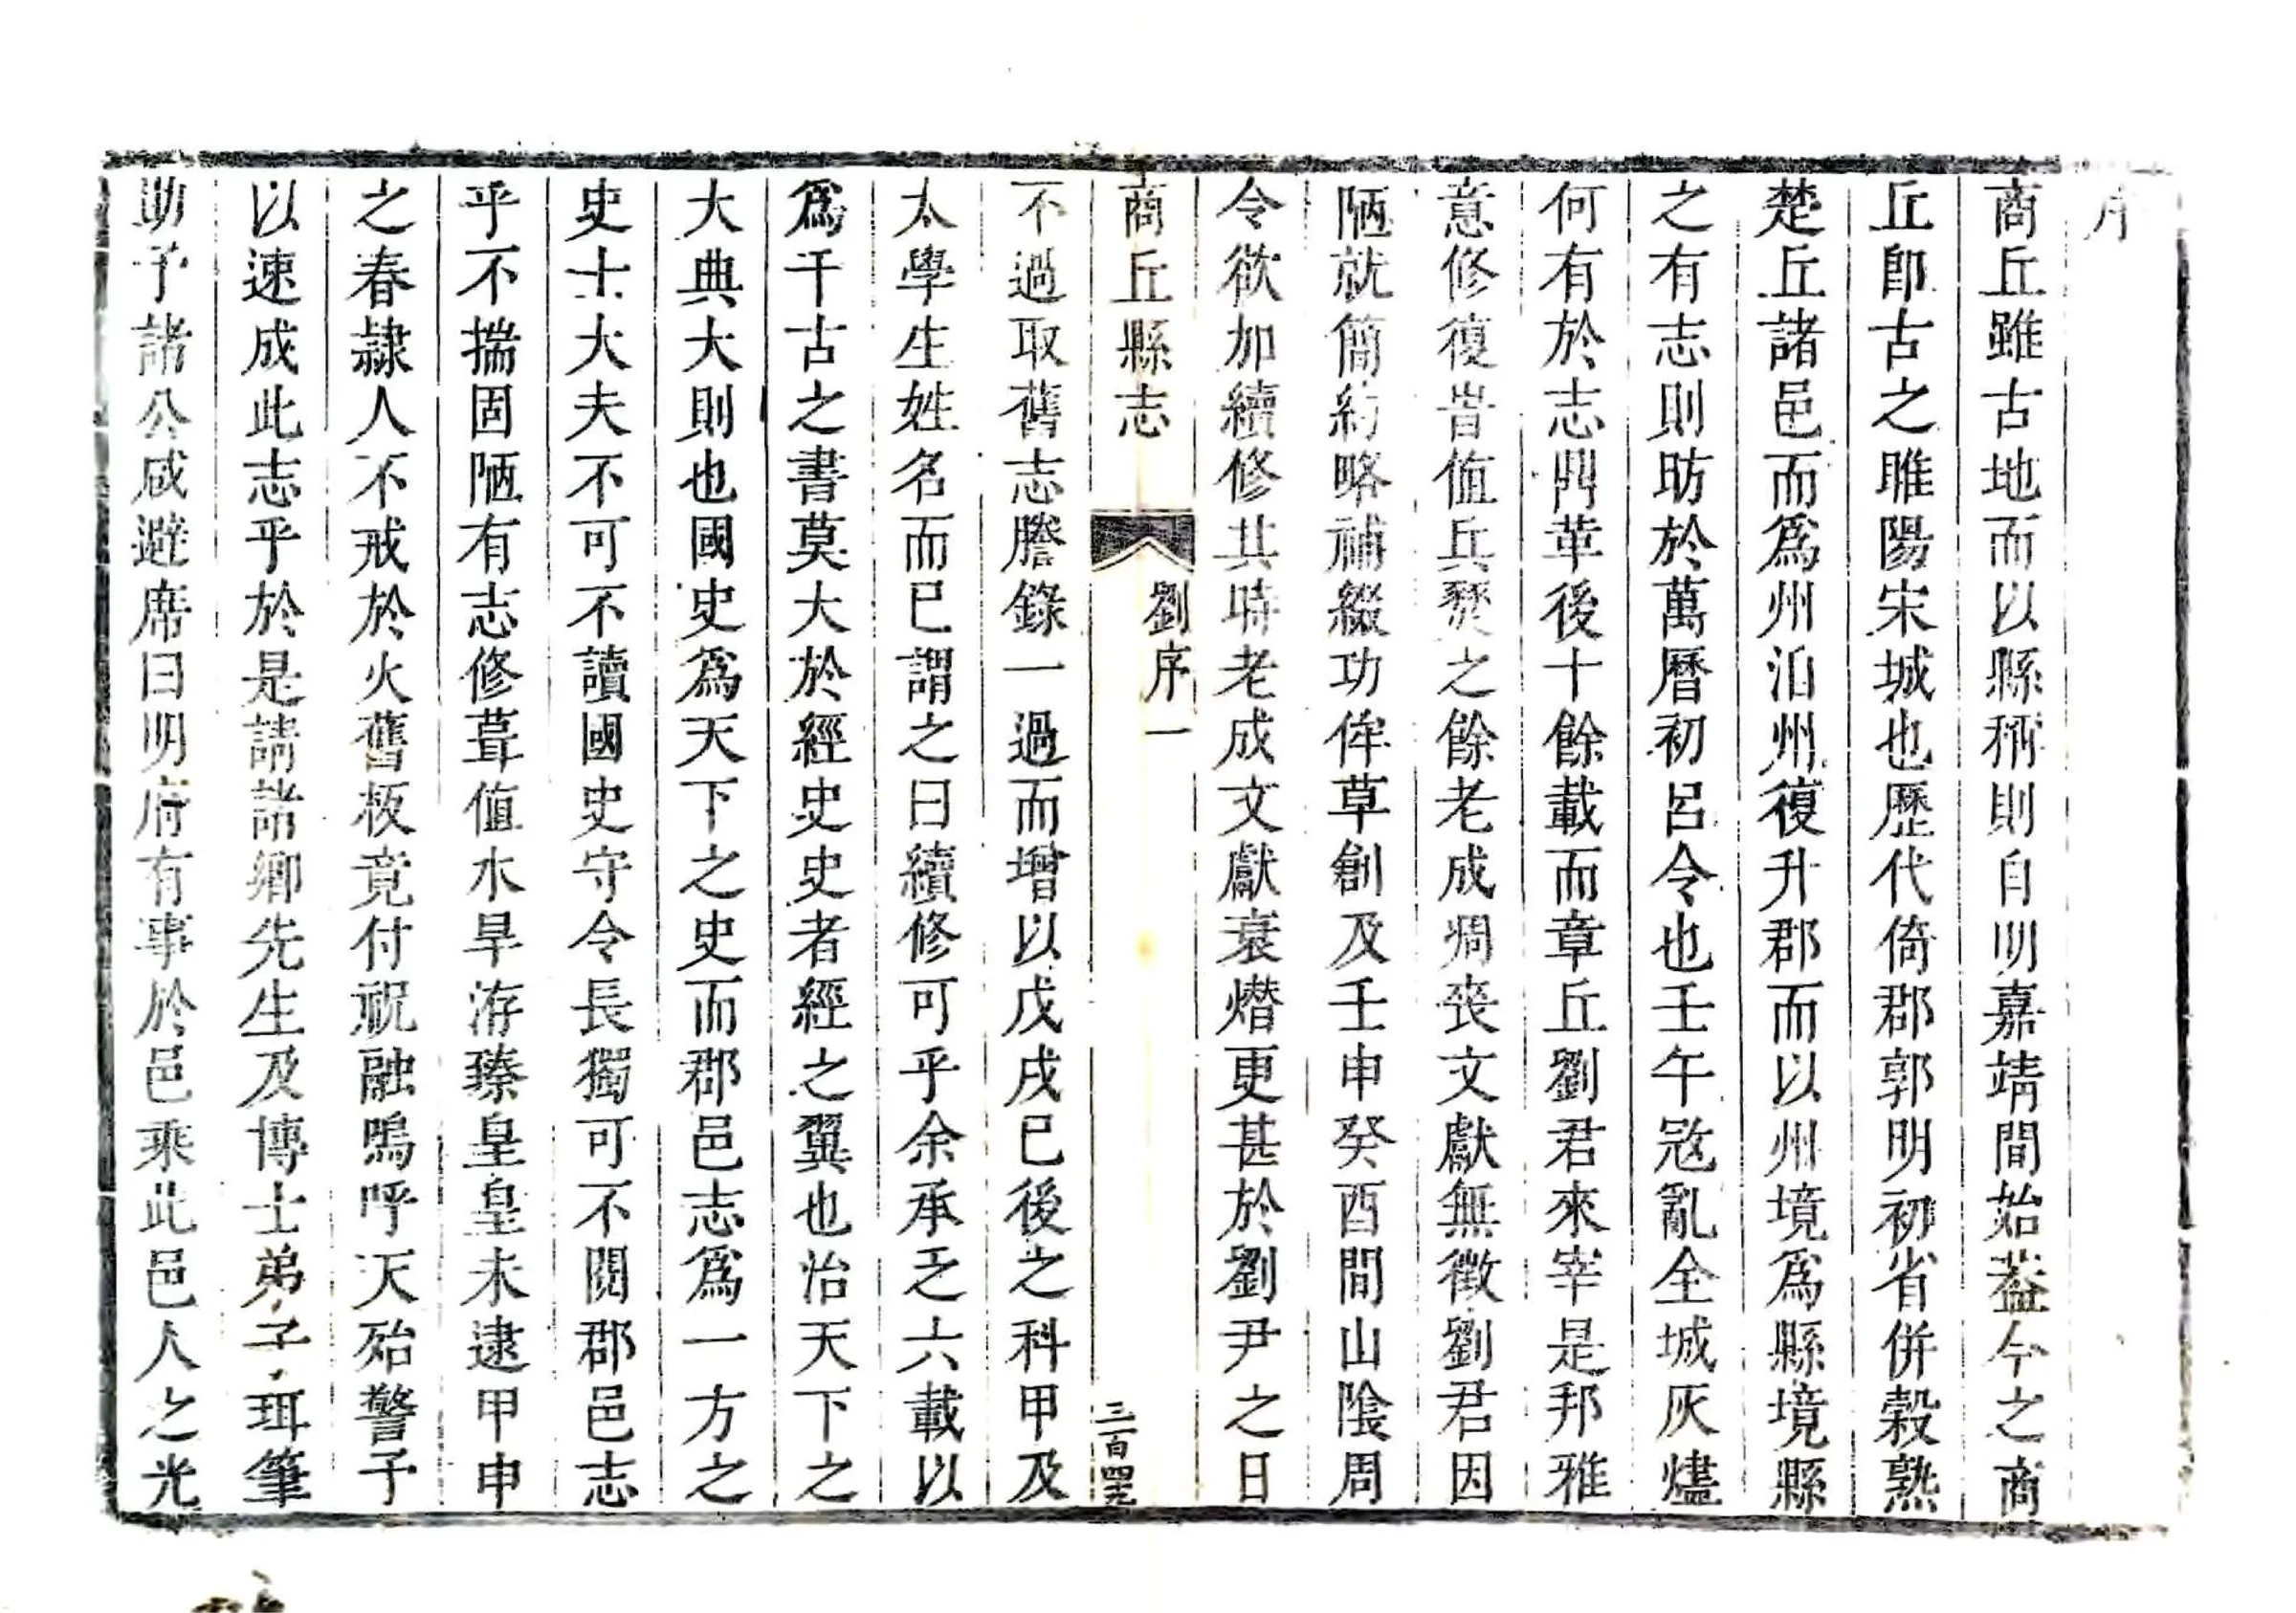 序
商丘雖古地而以縣稱則自明嘉靖間始葢今之商
丘卽古之睢陽宋城也歷代倚郡郭明初省併榖熟
楚丘諸邑而爲州洎州復升郡而以州境爲縣境縣
之有志則昉於萬曆初呂令也壬午宼亂全城灰燼
何有於志鼎革後十餘載而章丘劉君來宰是邦雅
意修復旹值兵燹之餘老成凋丧文獻無徵劉君因
陋就簡約略補綴功侔草創及壬申癸酉間山陰周
令欲加續修其時老成文獻衰熸更甚於劉尹之日
商丘縣志
劉序一
三百四十九
不過取舊志謄錄一過而增以戊戌巳後之科甲及
太學生姓名而已謂之曰續修可乎余承乏六載以
爲千古之書莫大於經史史者經之翼也治天下之
大典大則也國史爲天下之史而郡邑志爲一方之
史士大夫不可不讀國史守令長獨可不閱郡邑志
乎不揣固陋有志修葺值水旱洊臻皇皇未逮甲申
之春隷人不戒於火舊板竟付祝融嗚呼天殆警予
以速成此志乎於是請諸鄉先生及博士弟子珥筆
助予諸公咸避席曰明府有事於邑乘此邑人之光